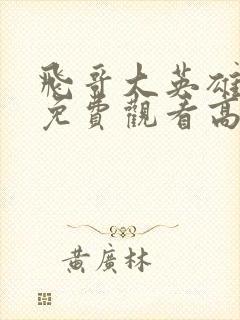 飛哥大英雄
免費觀看高
黃廣林